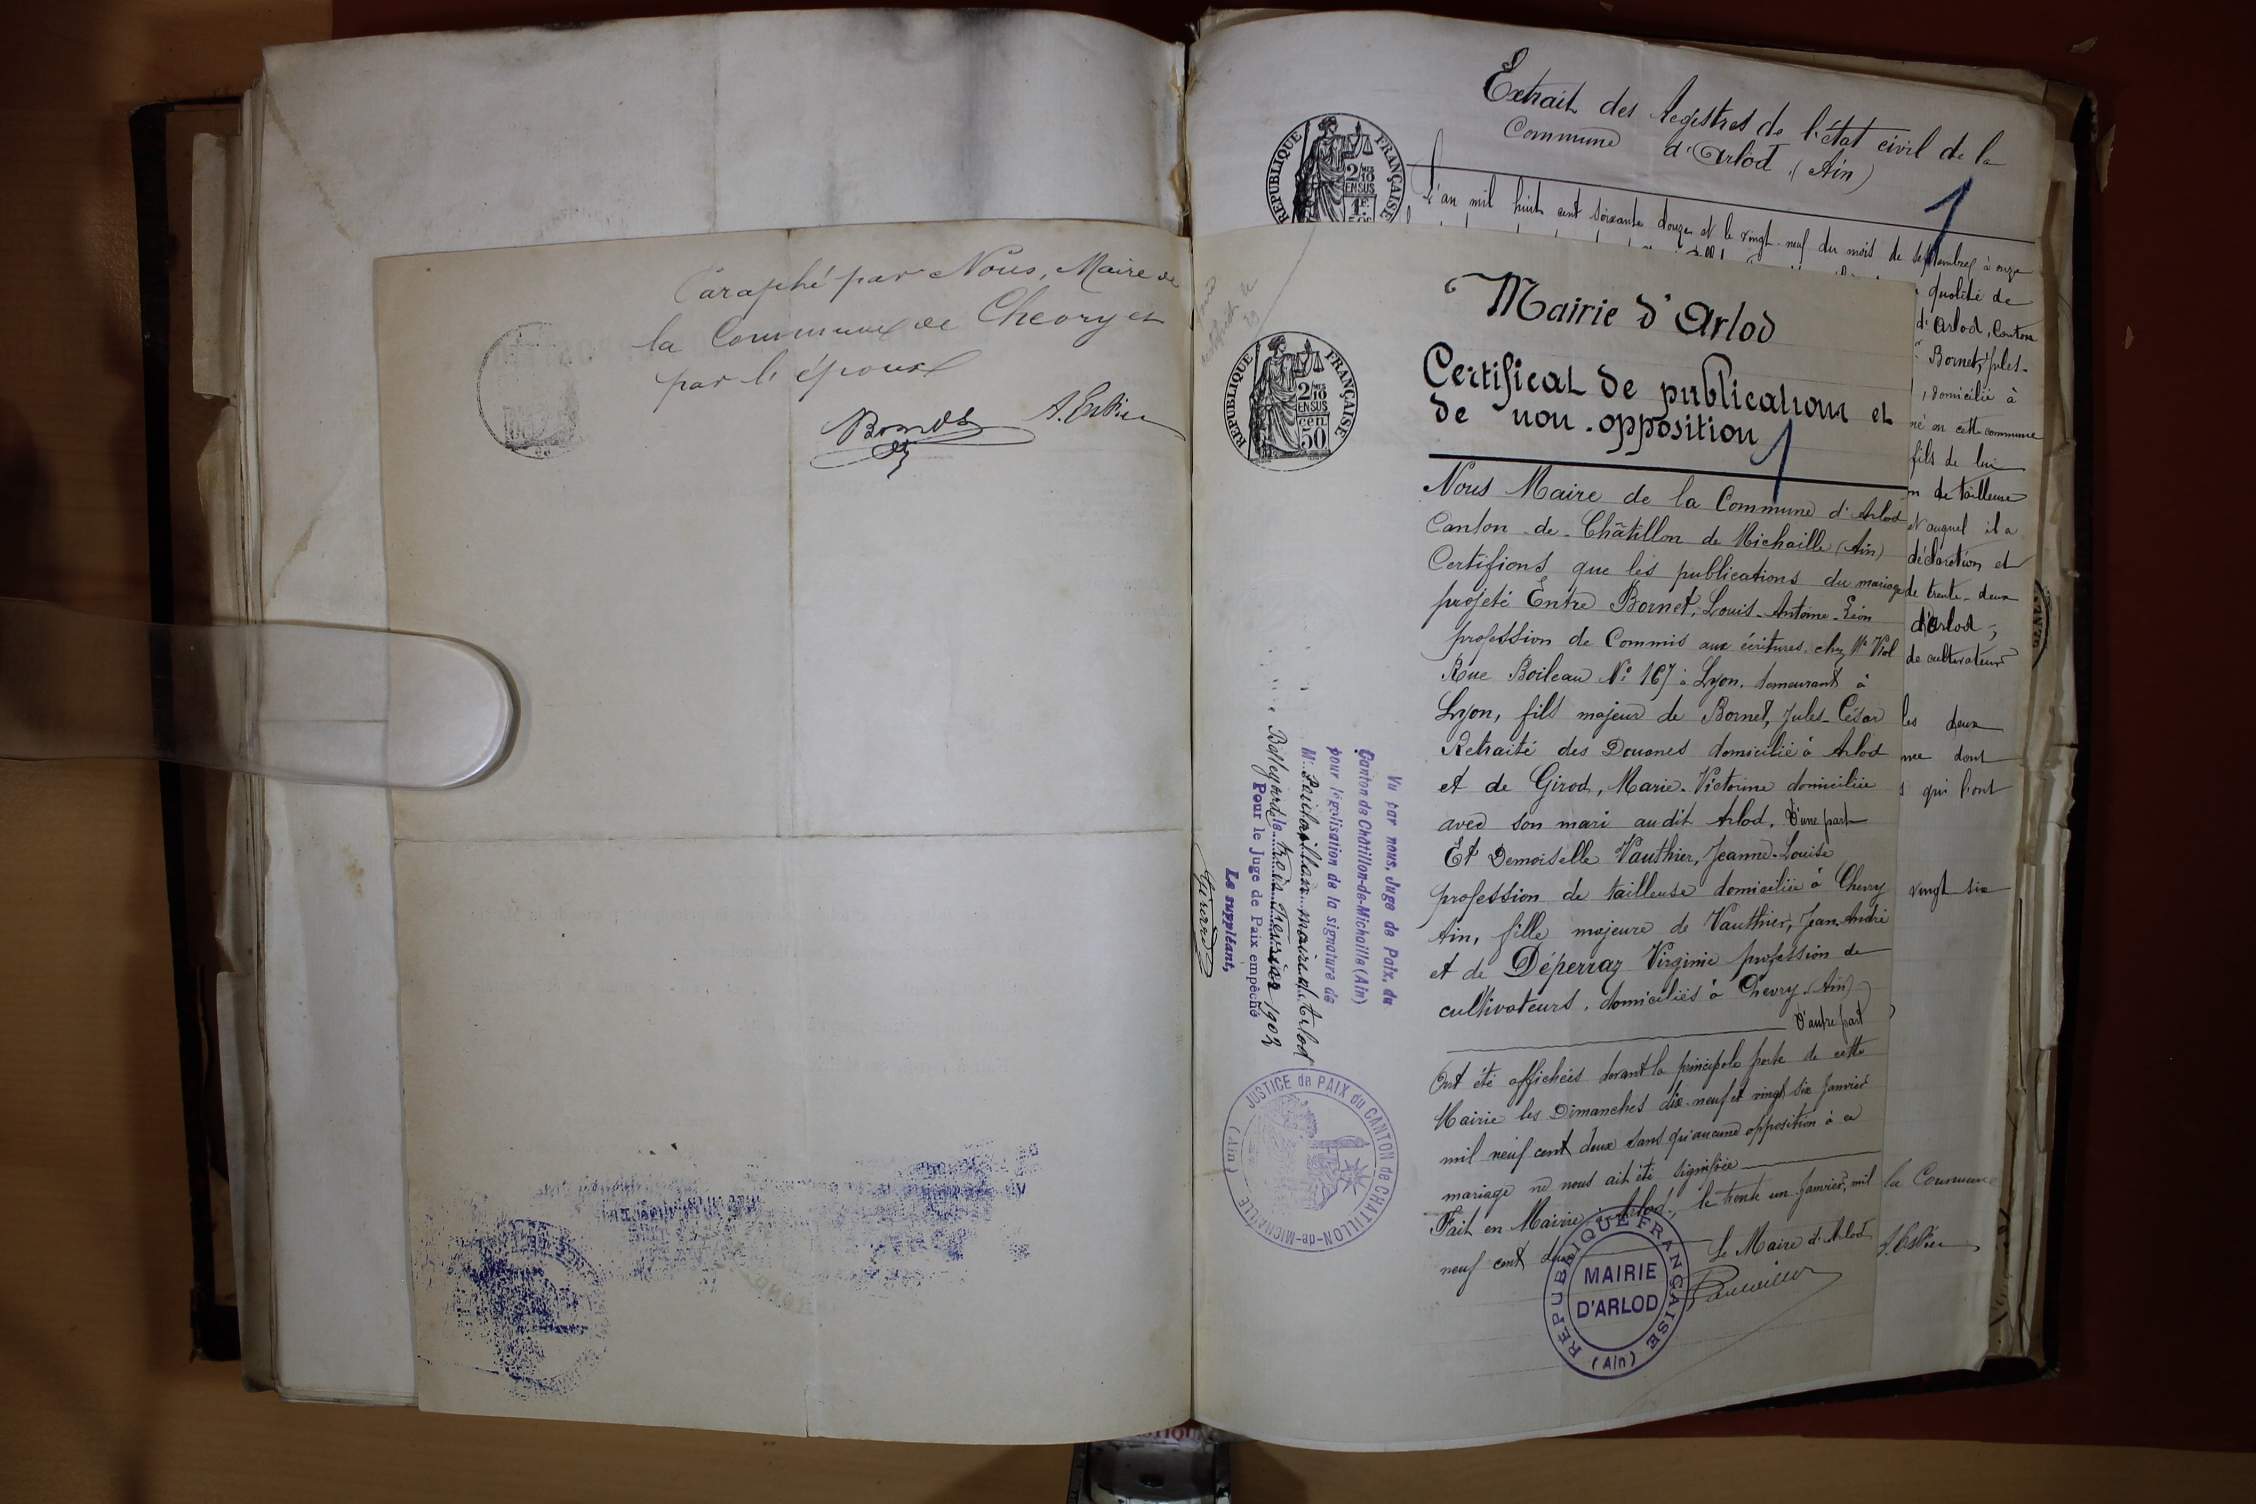 Paraphé par Nous, Maire de
la Commune de Chevry et
par l'époux
Bornet
Extrait des registres de l'état civil de la
Commune d'Arlod (Ain)
1
RÉPUBLIQUE FRANÇAISE
2/10
EN SUS
L'an mil huit cent soixante douze et le vingt-neuf du mois de septembre à onze
qualité de
d'Arlod, Canton
Bornet, Jules-
, domicilié à
né en cette commune
fils de lui
de tailleuse
et auquel il a
déclaration et
de trente-deux
d'Arlod,
de cultivateur
les deux
dont
qui l'ont
vingt six
la Commune
Mairie d'Arlod
Certificat de publications et
de non-opposition
1
RÉPUBLIQUE FRANÇAISE
2/10
EN SUS
cen.
50
Nous Maire de la Commune d'Arlod
Canton de Châtillon de Michaille (Ain)
Certifions que les publications du mariage
projeté Entre Bornet, Louis-Antoine-Léon
profession de Commis aux écritures chez Mr Viol
Rue Boileau No 167 à Lyon, demeurant à
Lyon, fils majeur de Bornet, Jules-César
Retraité des Douanes domicilié à Arlod
et de Girod, Marie-Victorine domiciliée
avec son mari audit Arlod, D'une part
Et Demoiselle Vauthier, Jeanne-Louise
profession de tailleuse domiciliée à Chevry
Ain, fille majeure de Vauthier, Jean-André
et de Déperraz Virginie profession de
cultivateurs, domiciliés à Chevry (Ain)
D'autre part
Ont été affichées devant la principale porte de cette
Mairie les Dimanches dix-neuf et vingt six Janvier
mil neuf cent deux sans qu'aucune opposition à ce
mariage ne nous ait été signifiée
Fait en Mairie à Arlod, le trente un Janvier, mil
neuf cent deux
Le Maire d'Arlod
RÉPUBLIQUE FRANÇAISE
MAIRIE
D'ARLOD
(Ain)
Vu par nous, Juge de Paix du
Canton de Châtillon-de-Michaille (Ain)
pour légalisation de la signature de
M. maire d'Arlod
Bellegarde le trois Février 1902
Pour le Juge de Paix empêché
Le suppléant,
JUSTICE de PAIX du CANTON de CHATILLON-de-MICHAILLE (Ain)